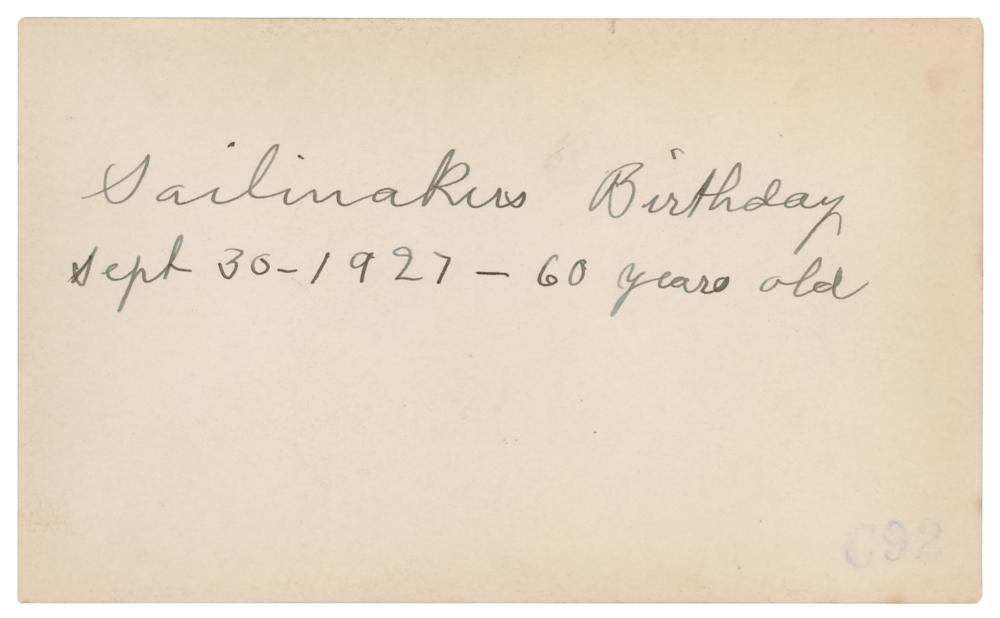 Sailmakers Birthday
Sept 30-1927 - 60 years old
C92